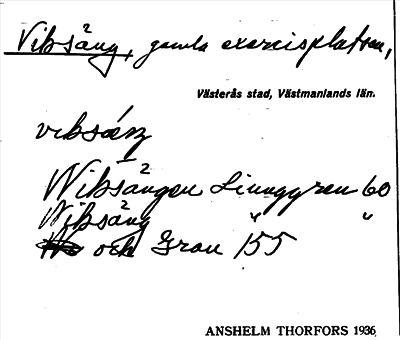 Vibsäng, gamla exercisplatsen,
Västerås stad, Västmanlands län.
vibsäŋ
Wibsängen Linnggren 60
Wibsäng " "
och Grau 155
ANSHELM THORFORS 1936